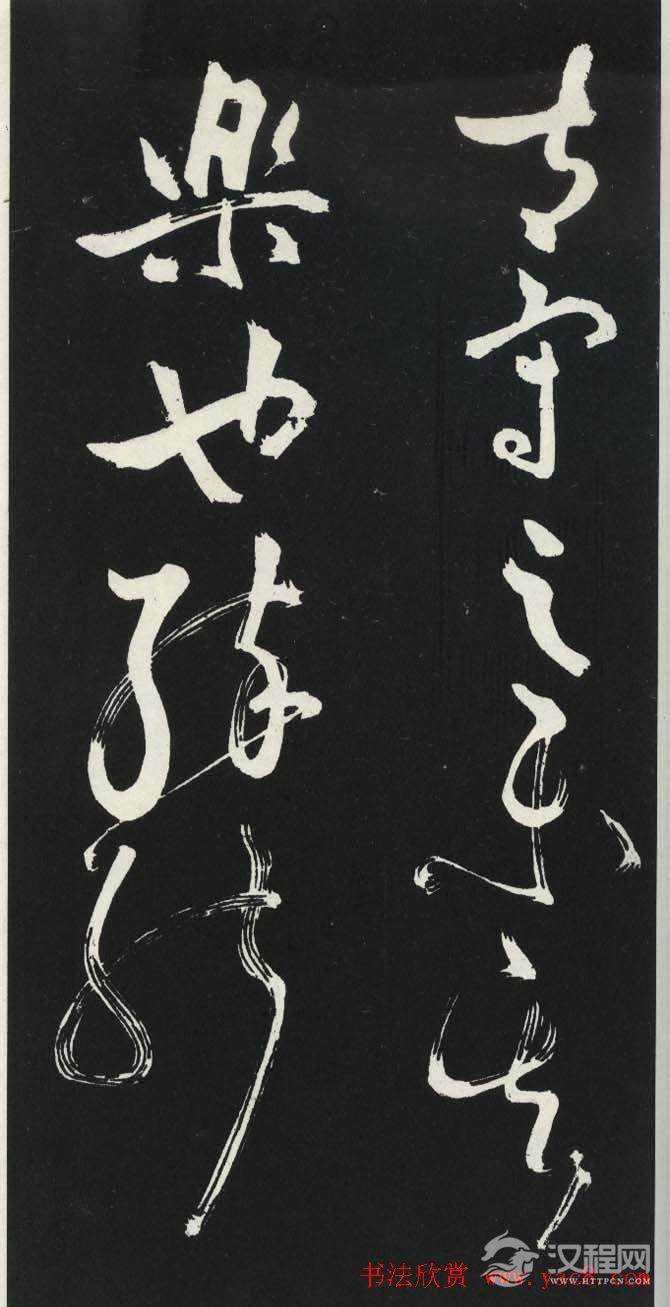 太守之樂其
樂也醉能
汉程网
书法欣赏
WWW.HTTPCN.COM